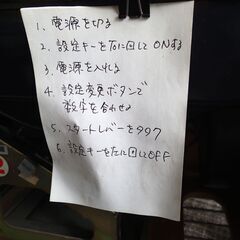 1、電源を切る
2、設定キーを右に回してONする
3、電源を入れる
4、設定変更ボタンで
数字を合わせる
5、スタートレバーを叩く
6、設定キーを左に回しOFF